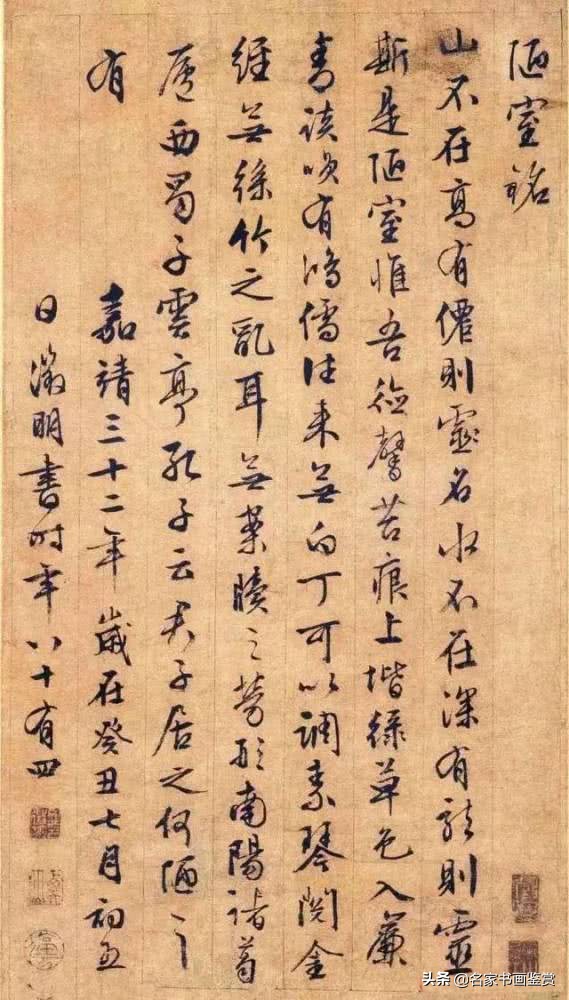 陋室銘
山不在高有僊則靈名水不在深有龍則靈
斯是陋室惟吾德馨苔痕上堦綠草色入簾
青談咲有鴻儒往来無白丁可以調素琴閱金
經無絲竹之亂耳無案牘之勞形南陽諸葛
廬西蜀子雲亭孔子云君子居之何陋之
有
嘉靖三十二年歲在癸丑七月初五
日徵明書時年八十有四
头条 @名家书画鉴赏